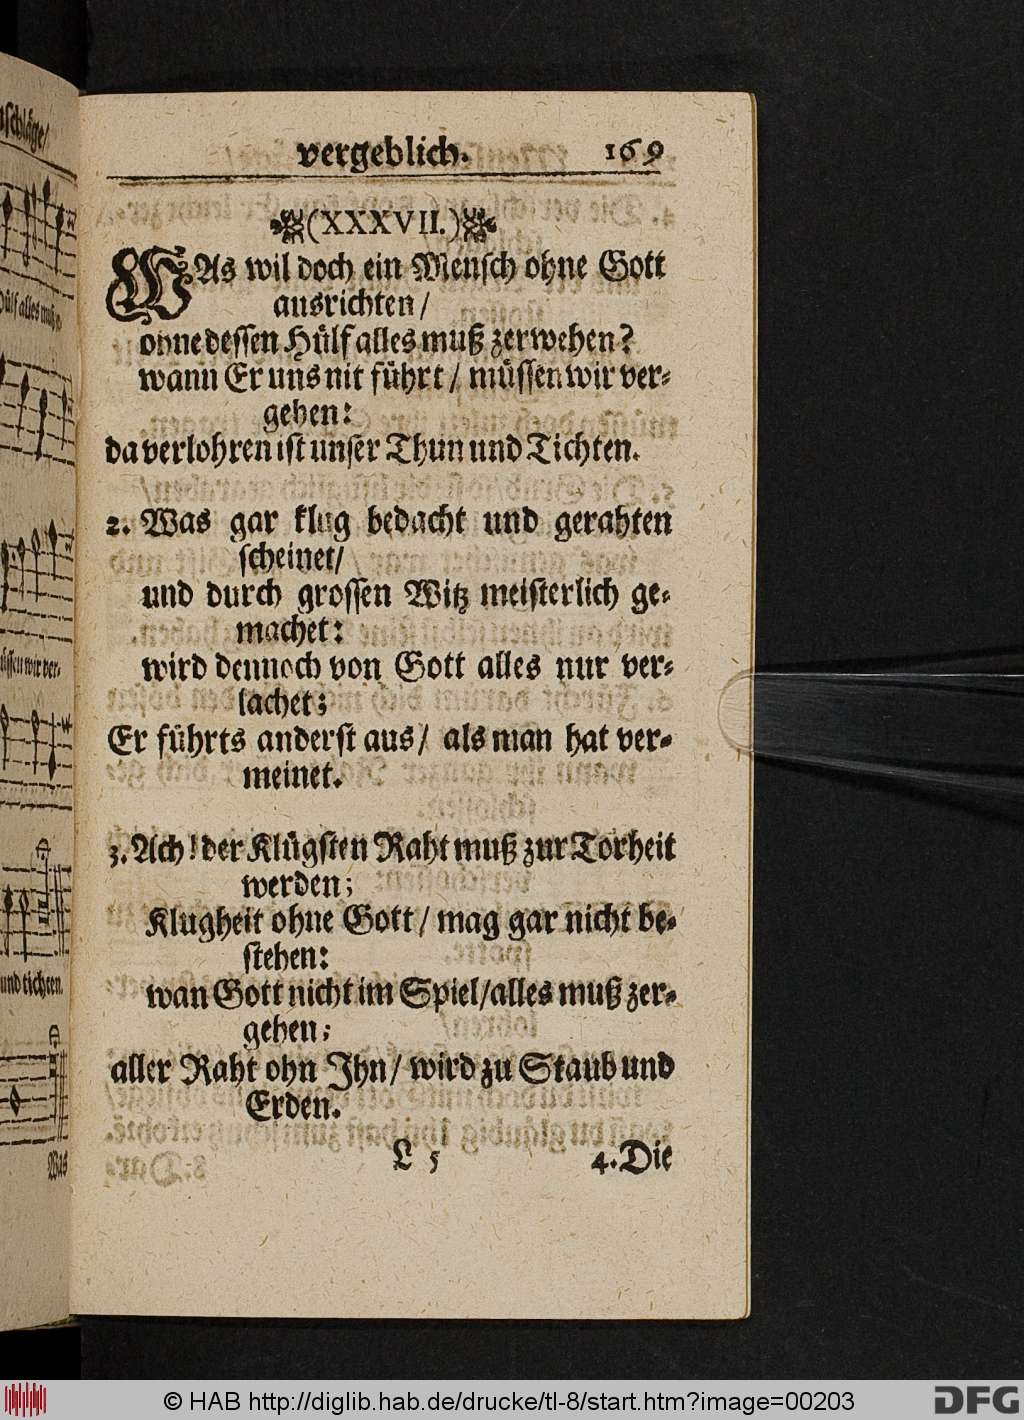 vergeblich. 169
(XXXVII.)
WAs wil doch ein Mensch ohne Gott
ausrichten /
ohne dessen Hülf alles muß zerwehen?
wann Er uns nit führt / müssen wir ver-
gehen:
da verlohren ist unser Thun und Tichten.
2. Was gar klug bedacht und gerahten
scheinet/
und durch grossen Witz meisterlich ge-
machet:
wird dennoch von Gott alles nur ver-
lachet;
Er führts anderst aus / als man hat ver-
meinet.
3. Ach! der Klügsten Raht muß zur Torheit
werden;
Klugheit ohne Gott / mag gar nicht be-
stehen:
wan Gott nicht im Spiel/alles muß zer-
gehen;
aller Raht ohn Ihn / wird zu Staub und
Erden.
L 5 4. Die
schläge/
Hülf alles muß
müssen wir ver-
und tichten.
Was
© HAB http://diglib.hab.de/drucke/tl-8/start.htm?image=00203
DFG